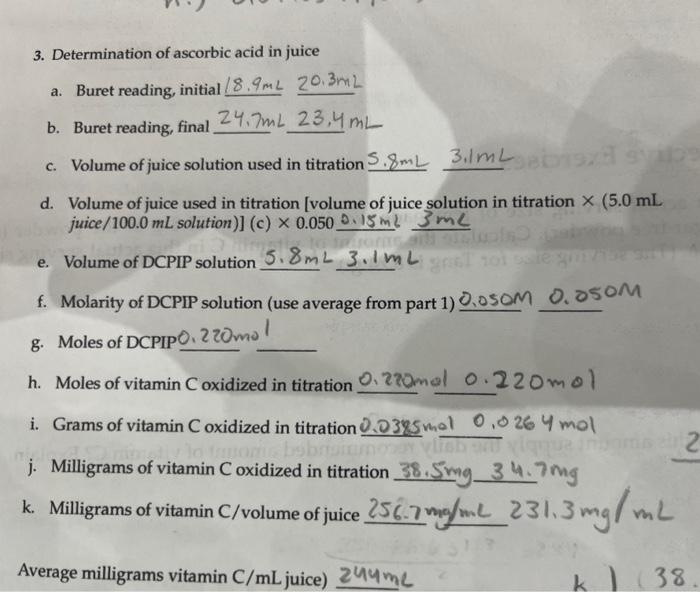 3. Determination of ascorbic acid in juice
a. Buret reading, initial 18.9mL 20.3mL
b. Buret reading, final 24.7mL 23.4mL
c. Volume of juice solution used in titration 5.8mL 3.1mL
d. Volume of juice used in titration [volume of juice solution in titration × (5.0 mL
juice/100.0 mL solution)] (c) × 0.050 0.15mL 3mL
e. Volume of DCPIP solution 5.8mL 3.1mL
f. Molarity of DCPIP solution (use average from part 1) 0.050M 0.050M
g. Moles of DCPIP 0.220mol
h. Moles of vitamin C oxidized in titration 0.220mol 0.220mol
i. Grams of vitamin C oxidized in titration 0.0385mol 0.0264mol
j. Milligrams of vitamin C oxidized in titration 38.5mg 34.7mg
2
k. Milligrams of vitamin C/volume of juice 256.7mg/mL 231.3mg/mL
Average milligrams vitamin C/mL juice) 244mL
k.) (38.